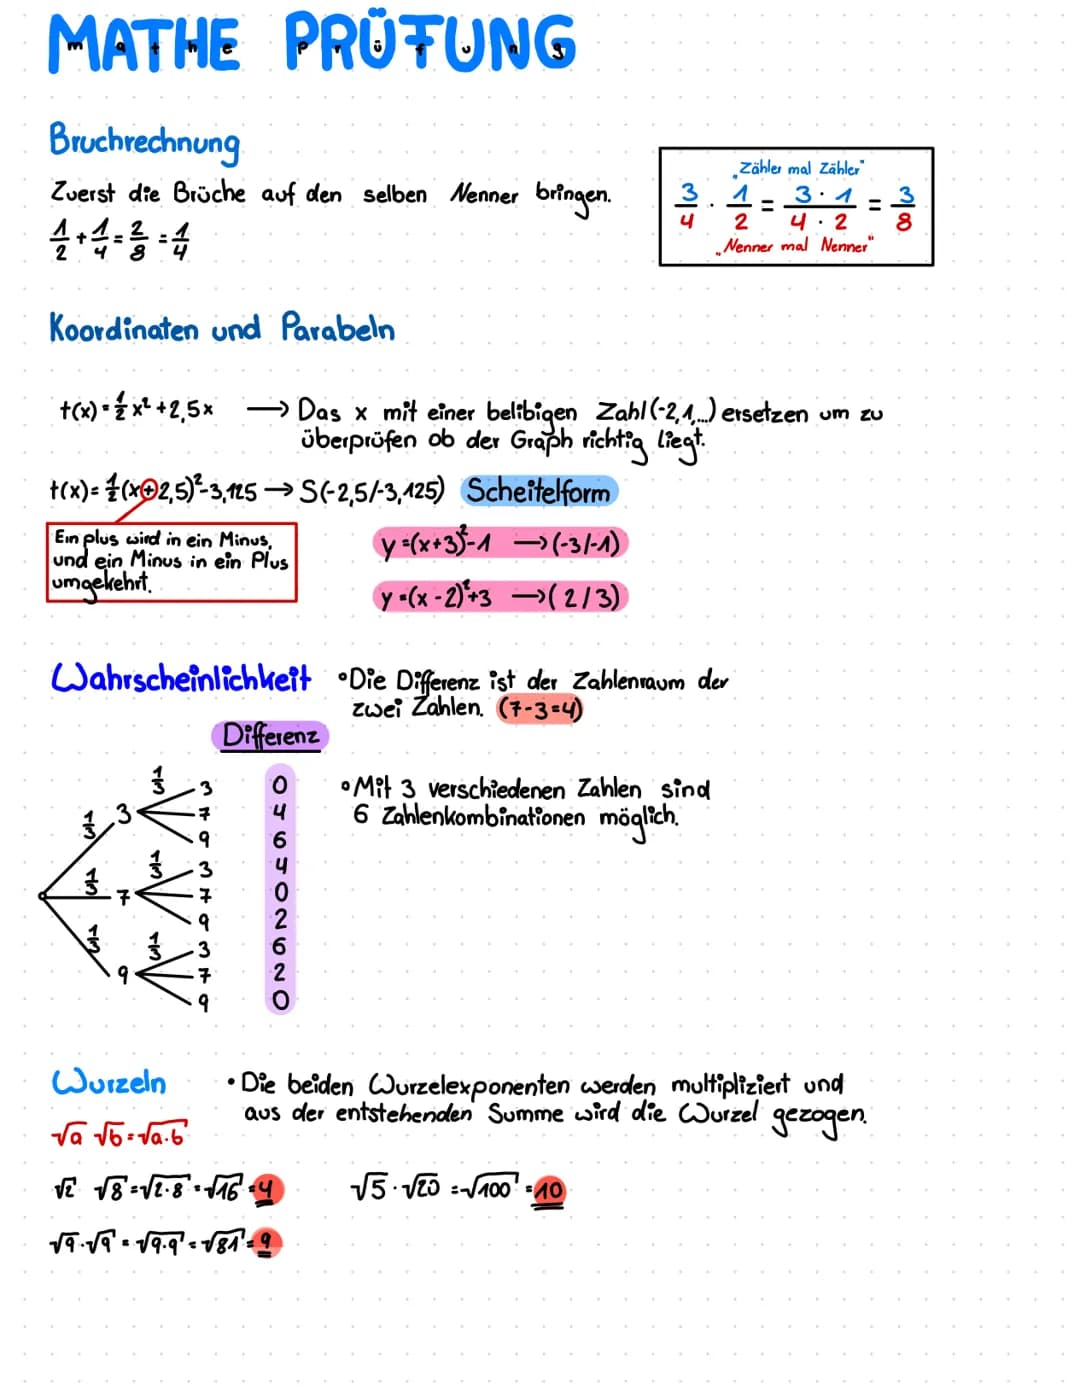 MATHE PRÜFUNG
mathe prüfung
Bruchrechnung
Zuerst die Brüche auf den selben Nenner bringen.
1/2 + 1/4 = 2/8 = 1/4
„Zähler mal Zähler"
3/4 · 1/2 = 3 · 1 / 4 · 2 = 3/8
„Nenner mal Nenner"
Koordinaten und Parabeln
f(x) = 1/2 x² + 2,5x → Das x mit einer belibigen Zahl (-2,1,...) ersetzen um zu
überprüfen ob der Graph richtig liegt.
f(x) = 1/2 (x+2,5)² -3,125 → S(-2,5/-3,125) Scheitelform
Ein plus wird in ein Minus,
und ein Minus in ein Plus
umgekehrt.
y =(x+3)² -1 → (-3/-1)
y =(x - 2)² +3 → ( 2/3)
Wahrscheinlichkeit
• Die Differenz ist der Zahlenraum der
zwei Zahlen. (7-3=4)
Differenz
• Mit 3 verschiedenen Zahlen sind
6 Zahlenkombinationen möglich.
1/3 3 1/3 3 0
7 4
9 6
1/3 7 1/3 3 4
7 0
9 2
1/3 9 1/3 3 6
7 2
9 0
Wurzeln
• Die beiden Wurzelexponenten werden multipliziert und
aus der entstehenden Summe wird die Wurzel gezogen.
√a √b = √a·b
√2 √8 = √2·8 = √16 = 4
√5 · √20 = √100 = 10
√9 · √9 = √9·9 = √81 = 9